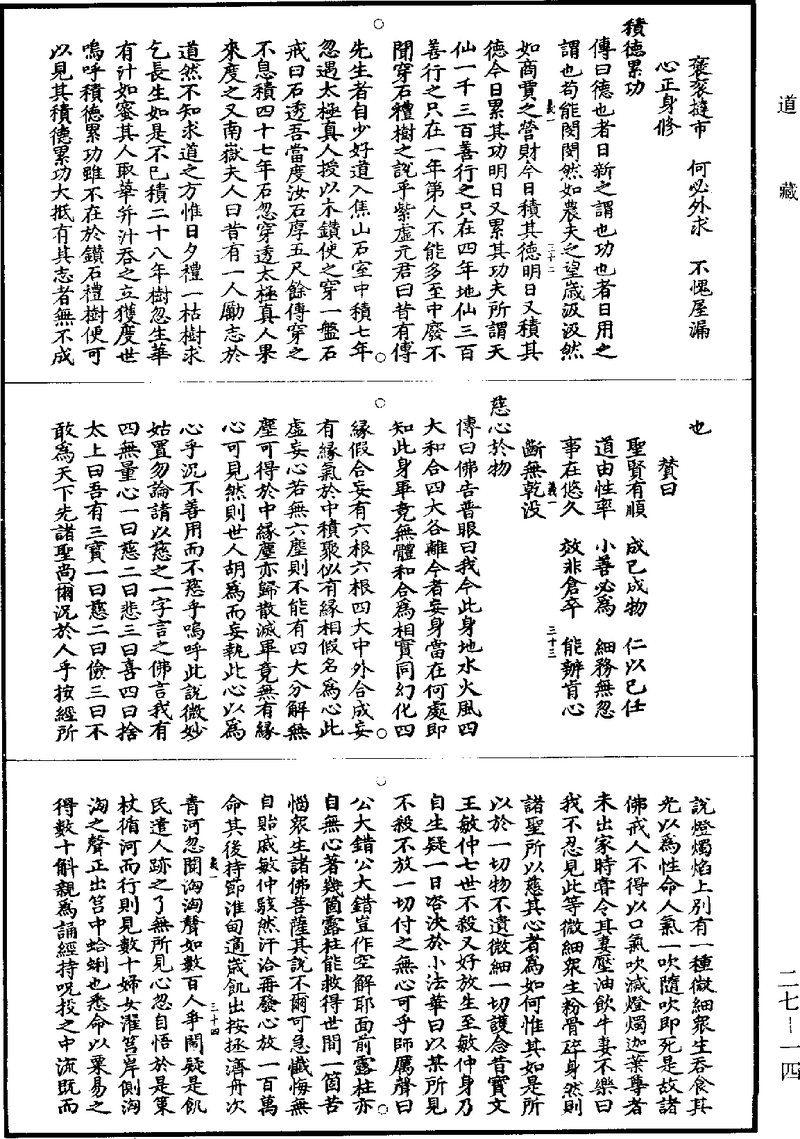 道藏
褒褒撻市　何必外求　不愧屋漏
心正身修
積德累功
傳曰德也者日新之謂也功也者日用之
謂也苟能閔閔然如農夫之望歲汲汲然
如商賈之營財今日積其德明日又積其
德今日累其功明日又累其功夫所謂天
仙一千三百善行之只在四年地仙三百
善行之只在一年第人不能多至中廢不
聞穿石禮樹之說乎紫虛元君曰昔有傳
先生者自少好道入焦山石室中積七年
忽遇太極真人授以木鑽使之穿一盤石
戒曰石透吾當度汝石厚五尺餘傳穿之
不息積四十七年石忽穿透太極真人果
來度之又南嶽夫人曰昔有一人勵志於
道然不知求道之方惟日夕禮一枯樹求
乞長生如是不已積二十八年樹忽生華
有汁如蜜其人取華并汁吞之立獲度世
嗚呼積德累功雖不在於鑽石禮樹便可
以見其積德累功大抵有其志者無不成
也
贊曰
聖賢有順　成己成物　仁以己任
道由性率　小善必為　細務無忽
事在悠久　效非倉卒　能辦肯心
斷無乾没
慈心於物
傳曰佛告普眼曰我今此身地水火風四
大和合四大各離今者妄身當在何處即
知此身畢竟無體和合為相實同幻化四
緣假合妄有六根六根四大中外合成妄
有緣氣於中積聚似有緣相假名為心此
虛妄心若無六塵則不能有四大分解無
塵可得於中緣塵亦歸散滅畢竟無有緣
心可見然則世人胡為而妄執此心以為
心乎況不善用而不慈乎嗚呼此說微妙
姑置勿論請以慈之一字言之佛言我有
四無量心一曰慈二曰悲三曰喜四曰捨
太上曰吾有三寶一曰慈二曰儉三曰不
敢為天下先諸聖尚爾況於人乎按經所
說燈燭焰上別有一種微細眾生吞食其
光以為性命人氣一吹隨吹即死是故諸
佛戒人不得以口氣吹滅燈燭迦葉尊者
未出家時嘗令其妻壓油飲牛妻不樂曰
我不忍見此等微細眾生粉骨碎身然則
諸聖所以慈其心者為如何惟其如是所
以於一切物不遺微細一切護念昔寶文
王敏仲七世不殺又好放生至敏仲身乃
自生疑一日咨決於小法華曰以某所見
不殺不放一切付之無心可乎師厲聲曰
公大錯公大錯豈作空解耶面前露柱亦
自無心著幾箇露柱能救得世間一箇苦
惱眾生諸佛菩薩其說不爾可急懺悔無
自貽戚敏仲駭然汗洽再發心放一百萬
命其後持節淮甸適歲飢出按拯濟舟次
青河忽聞洶洶聲如數百人爭鬧疑是飢
民遣人跡之了無所見心忽自悟於是策
杖循河而行則見數十婦女濯筥岸側洶
洶之聲正出筥中蛤蜊也悉命以粟易之
得數十斛親為誦經持呪投之中流既而
義一
三十二
義一
三十三
義一
三十四
二七－一四